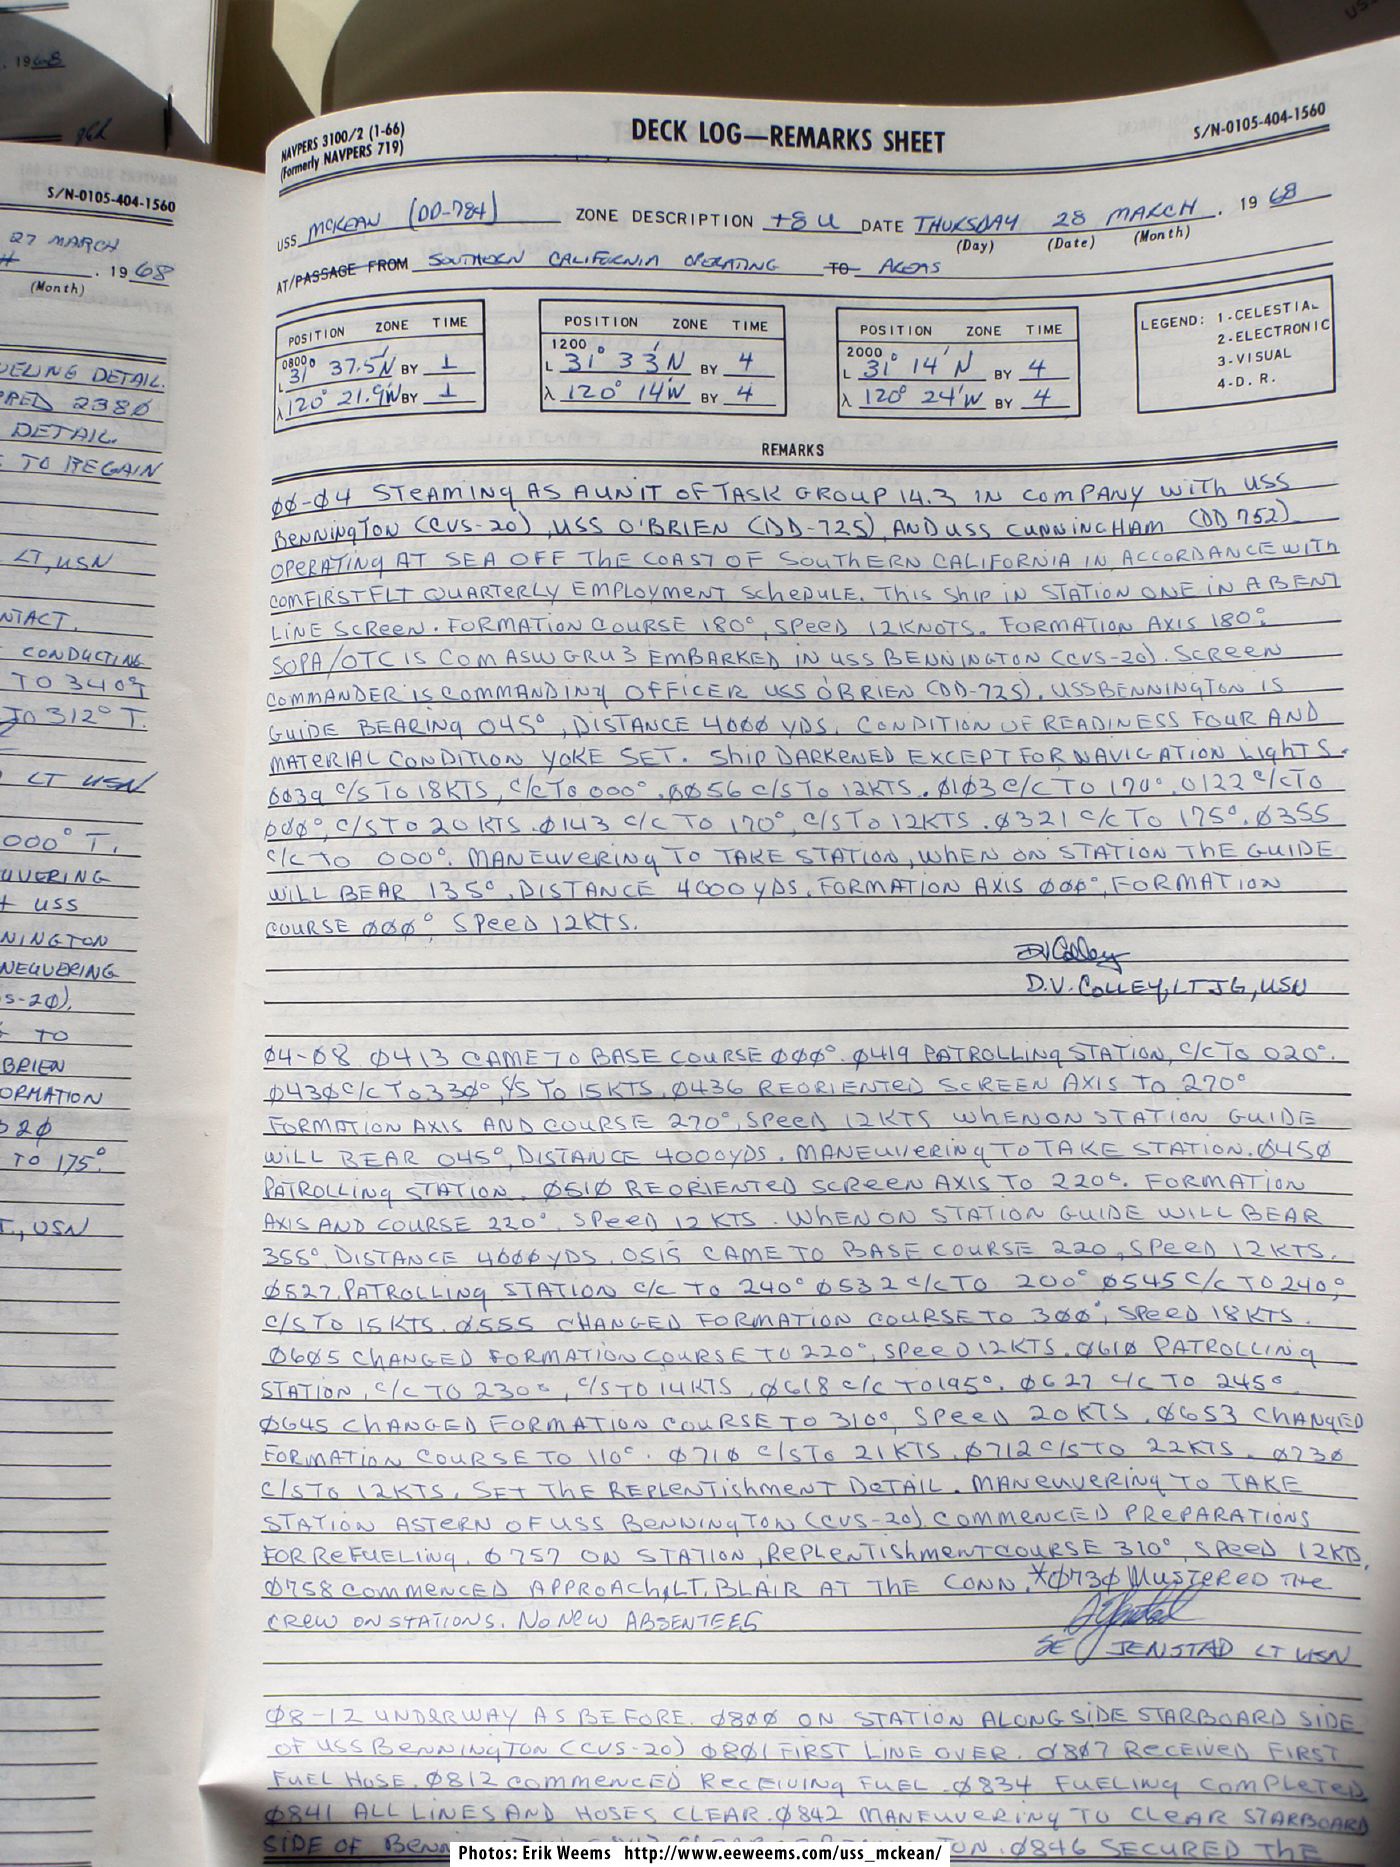 . 1968
S/N-0105-404-1560
27 MARCH
. 1968
(Month)
UELING DETAIL.
2380
DETAIL.
TO REGAIN
LT, USN
NTACT.
CONDUCTING
TO 340°T
TO 312° T.
LT USN
000° T.
UVERING
USS
NINGTON
NEUVERING
S-20).
TO
BRIEN
ORMATION
TO 175°.
T., USN
NAVPERS 3100/2 (1-66)
(Formerly NAVPERS 719)
DECK LOG—REMARKS SHEET
S/N-0105-404-1560
USS MCKEAN (DD-784) ZONE DESCRIPTION +8U DATE THURSDAY 28 MARCH . 1968
(Day) (Date) (Month)
AT/PASSAGE FROM SOUTHERN CALIFORNIA OPERATING TO AREAS
POSITION ZONE TIME
0800
L 31° 37.5'N BY 1
λ 120° 21.9'W BY 1
POSITION ZONE TIME
1200
L 31° 33'N BY 4
λ 120° 14'W BY 4
POSITION ZONE TIME
2000
L 31° 14'N BY 4
λ 120° 24'W BY 4
LEGEND: 1-CELESTIAL
2-ELECTRONIC
3-VISUAL
4-D.R.
REMARKS
00-04 STEAMING AS A UNIT OF TASK GROUP 14.3 IN COMPANY WITH USS
BENNINGTON (CVS-20), USS O'BRIEN (DD-725), AND USS CUNNINGHAM (DD 752)
OPERATING AT SEA OFF THE COAST OF SOUTHERN CALIFORNIA IN ACCORDANCE WITH
COMFIRSTFLT QUARTERLY EMPLOYMENT SCHEDULE. THIS SHIP IN STATION ONE IN A BENT
LINE SCREEN. FORMATION COURSE 180°, SPEED 12 KNOTS. FORMATION AXIS 180°.
SOPA/OTC IS COMASWGRU 3 EMBARKED IN USS BENNINGTON (CVS-20). SCREEN
COMMANDER IS COMMANDING OFFICER USS O'BRIEN (DD-725). USS BENNINGTON IS
GUIDE BEARING 045°, DISTANCE 4000 YDS. CONDITION OF READINESS FOUR AND
MATERIAL CONDITION YOKE SET. SHIP DARKENED EXCEPT FOR NAVIGATION LIGHTS.
0039 C/S TO 18KTS, C/C TO 000°. 0056 C/S TO 12KTS. 0103 C/C TO 170°. 0122 C/C TO
000°, C/S TO 20 KTS. 0143 C/C TO 170°, C/S TO 12KTS. 0321 C/C TO 175°. 0355
C/C TO 000°. MANEUVERING TO TAKE STATION, WHEN ON STATION THE GUIDE
WILL BEAR 135°, DISTANCE 4000 YDS. FORMATION AXIS 000°, FORMATION
COURSE 000°, SPEED 12KTS.
DVColley
D.V. COLLEY, LTJG, USN
04-08 0413 CAME TO BASE COURSE 000°. 0419 PATROLLING STATION, C/C TO 020°.
0430 C/C TO 330°, C/S TO 15KTS. 0436 REORIENTED SCREEN AXIS TO 270°
FORMATION AXIS AND COURSE 270°, SPEED 12KTS WHEN ON STATION GUIDE
WILL BEAR 045°, DISTANCE 4000YDS. MANEUVERING TO TAKE STATION. 0450
PATROLLING STATION. 0510 REORIENTED SCREEN AXIS TO 220°. FORMATION
AXIS AND COURSE 220°, SPEED 12 KTS. WHEN ON STATION GUIDE WILL BEAR
355°. DISTANCE 4000YDS. 0515 CAME TO BASE COURSE 220, SPEED 12KTS.
0527, PATROLLING STATION C/C TO 240° 0532 C/C TO 200° 0545 C/C TO 240°,
C/S TO 15KTS. 0555 CHANGED FORMATION COURSE TO 300°, SPEED 18KTS.
0605 CHANGED FORMATION COURSE TO 220°, SPEED 12KTS. 0610 PATROLLING
STATION, C/C TO 230°, C/S TO 14KTS, 0618 C/C TO 195°. 0627 C/C TO 245°
0645 CHANGED FORMATION COURSE TO 310°, SPEED 20KTS. 0653 CHANGED
FORMATION COURSE TO 110°. 0710 C/S TO 21KTS. 0712 C/S TO 22KTS. 0730
C/S TO 12KTS. SET THE REPLENTISHMENT DETAIL. MANEUVERING TO TAKE
STATION ASTERN OF USS BENNINGTON (CVS-20). COMMENCED PREPARATIONS
FOR REFUELING. 0757 ON STATION, REPLENTISHMENT COURSE 310°, SPEED 12KTS.
0758 COMMENCED APPROACH, LT. BLAIR AT THE CONN. *0730 MUSTERED THE
CREW ON STATIONS. NO NEW ABSENTEES
SE JENSTAD LT USN
08-12 UNDERWAY AS BEFORE. 0800 ON STATION ALONGSIDE STARBOARD SIDE
OF USS BENNINGTON (CVS-20) 0801 FIRST LINE OVER. 0807 RECEIVED FIRST
FUEL HOSE. 0812 COMMENCED RECEIVING FUEL. 0834 FUELING COMPLETED
0841 ALL LINES AND HOSES CLEAR. 0842 MANEUVERING TO CLEAR STARBOARD
SIDE OF 0846 SECURED THE
Photos: Erik Weems http://www.eeweems.com/uss_mckean/